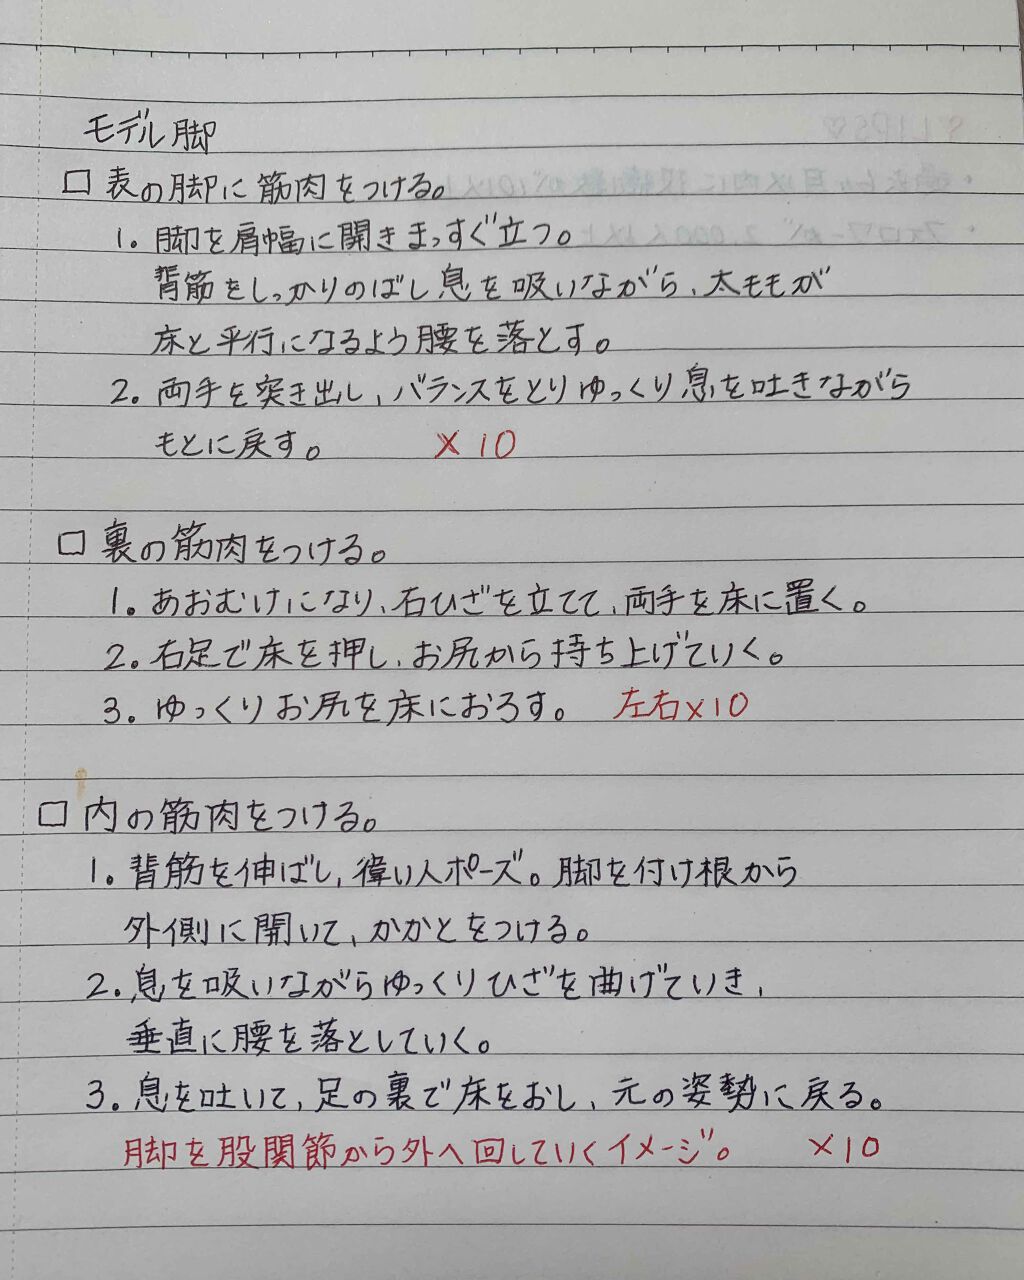 モデル脚
□ 表の脚に筋肉をつける。
1. 脚を肩幅に開きまっすぐ立つ。
背筋をしっかりのばし息を吸いながら、太ももが
床と平行になるよう腰を落とす。
2. 両手を突き出し、バランスをとりゆっくり息を吐きながら
もとに戻す。 ×10
□ 裏の筋肉をつける。
1. あおむけになり、右ひざを立てて、両手を床に置く。
2. 右足で床を押し、お尻から持ち上げていく。
3. ゆっくりお尻を床におろす。 左右×10
□ 内の筋肉をつける。
1. 背筋を伸ばし、偉い人ポーズ。脚を付け根から
外側に開いて、かかとをつける。
2. 息を吸いながらゆっくりひざを曲げていき、
垂直に腰を落としていく。
3. 息を吐いて、足の裏で床をおし、元の姿勢に戻る。
脚を股関節から外へ回していくイメージ。 ×10